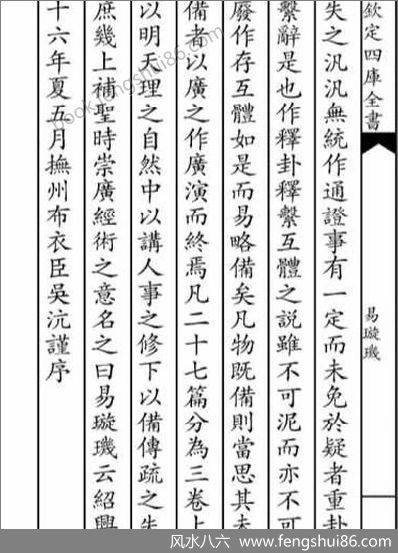 欽定四庫全書
易璇璣
失之汎汎無統作通證事有一定而未免於疑者重卦
繫辭是也作釋卦釋繫互體之說雖不可泥而亦不可
廢作存互體如是而易略備矣凡物既備則當思其未
備者以廣之作廣演而終焉凡二十七篇分為三卷上
以明天理之自然中以講人事之修下以備傳疏之失
庶幾上補聖時崇廣經術之意名之曰易璇璣云紹興
十六年夏五月撫州布衣臣吳沆謹序
book.fengshui86.com
风水八六 www.fengshui86.com